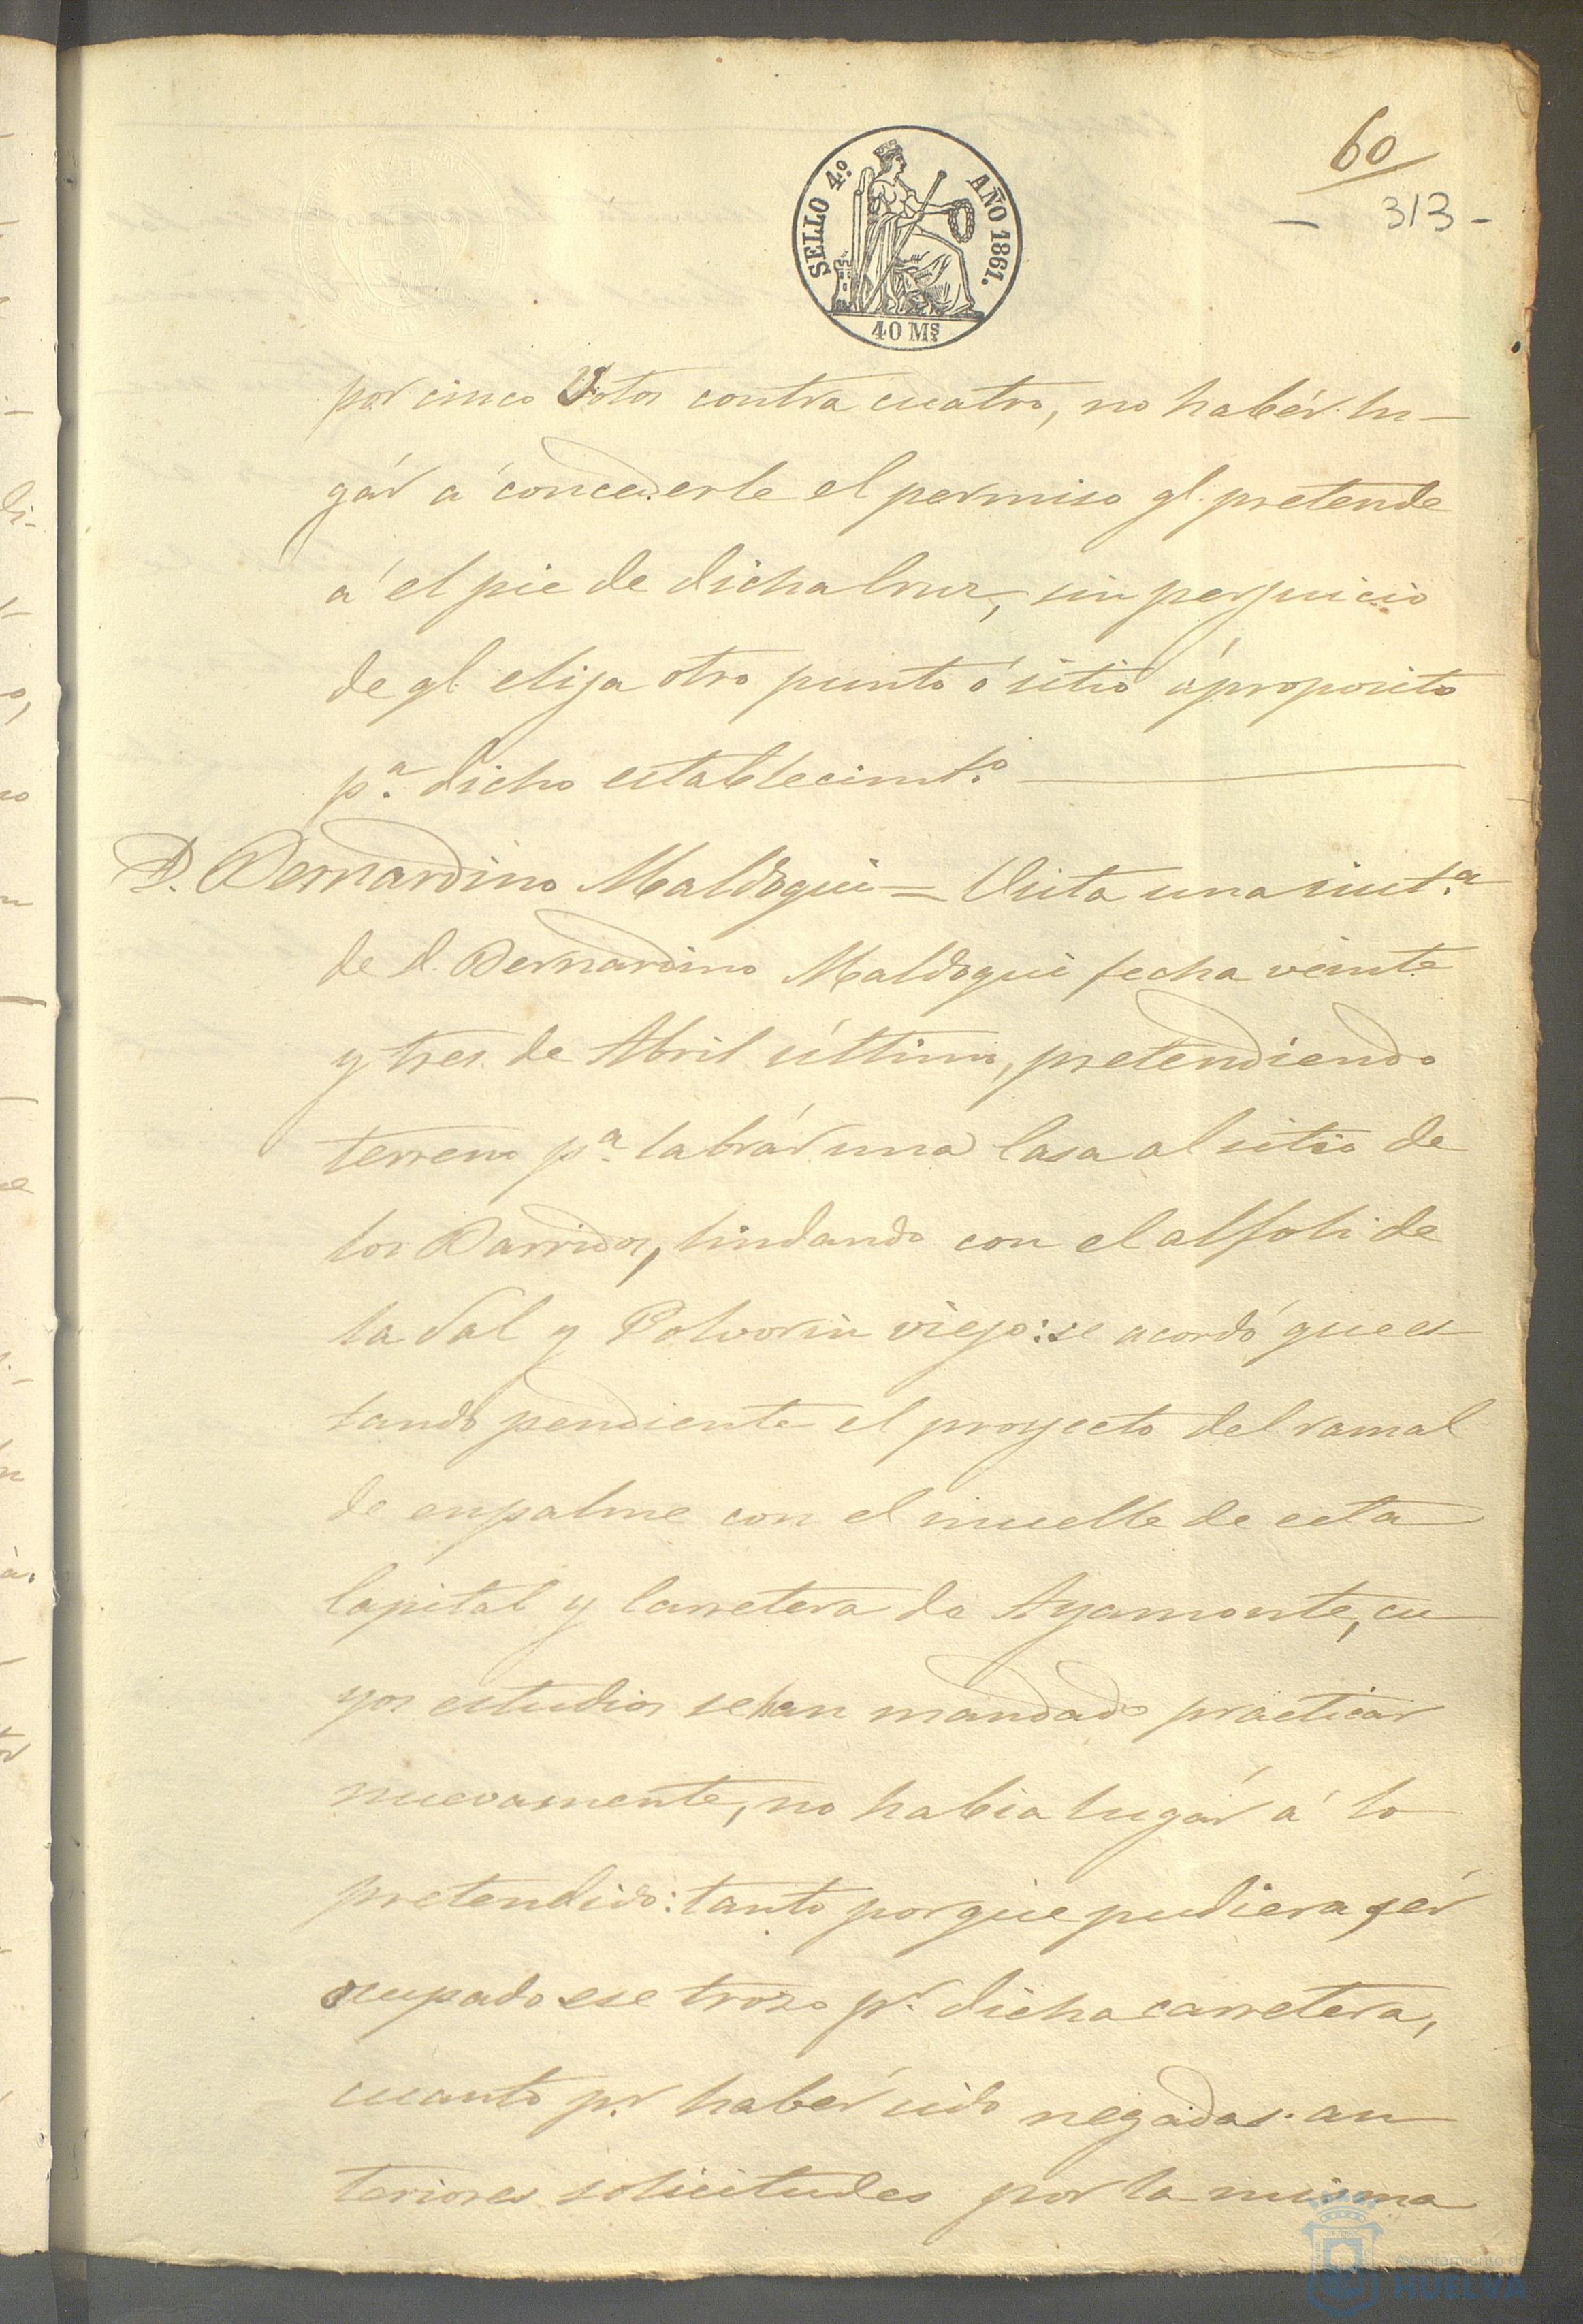 60
- 313 -
SELLO 4.º AÑO 1861.
40 Ms
por cinco Votos contra cuatro, no habér lu-
gár á concederle el permiso ql. pretende
á el pie de dicha Cruz, sin perjuicio
de ql. elija otro punto ó sitio ápropósito
p.ª dicho establecimt.º
D. Bernardino Maldogui = Vista una inst.ª
de D. Bernardino Maldogui fecha veinte
y tres de Abril último, pretendiendo
terreno p.ª labrár una Casa al sitio de
los Barridos, lindando con el alfoli de
la Sal y Polvorin viejo: se acordó que es-
tando pendiente el proyecto del ramal
de enpalme con el muelle de esta
Capital y Carretera de Ayamonte, cu-
yos estudios sehan mandado practicar
nuevamente, no habia lugár á lo
pretendido: tanto porque pudiera sér
ocupado ese trozo p.r dicha carretera,
cuanto p.r habér sido negadas an-
teriores solicitudes por la misma
Ayuntamiento de
HUELVA